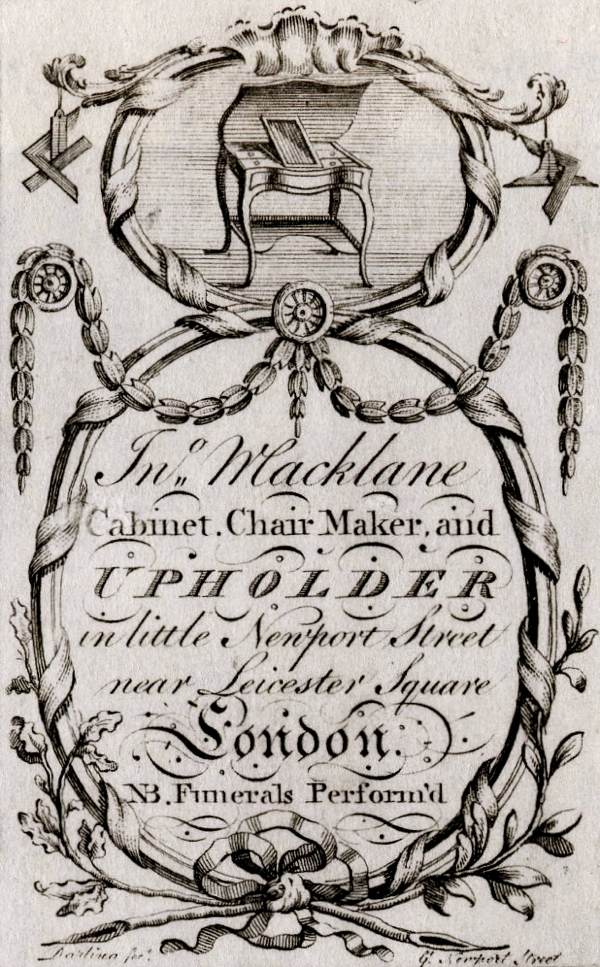 Jnº. Macklane
Cabinet. Chair Maker, and
UPHOLDER
in little Newport Street
near Leicester Square
London.
NB. Funerals Perform'd
Darling fect. Gt. Newport Street